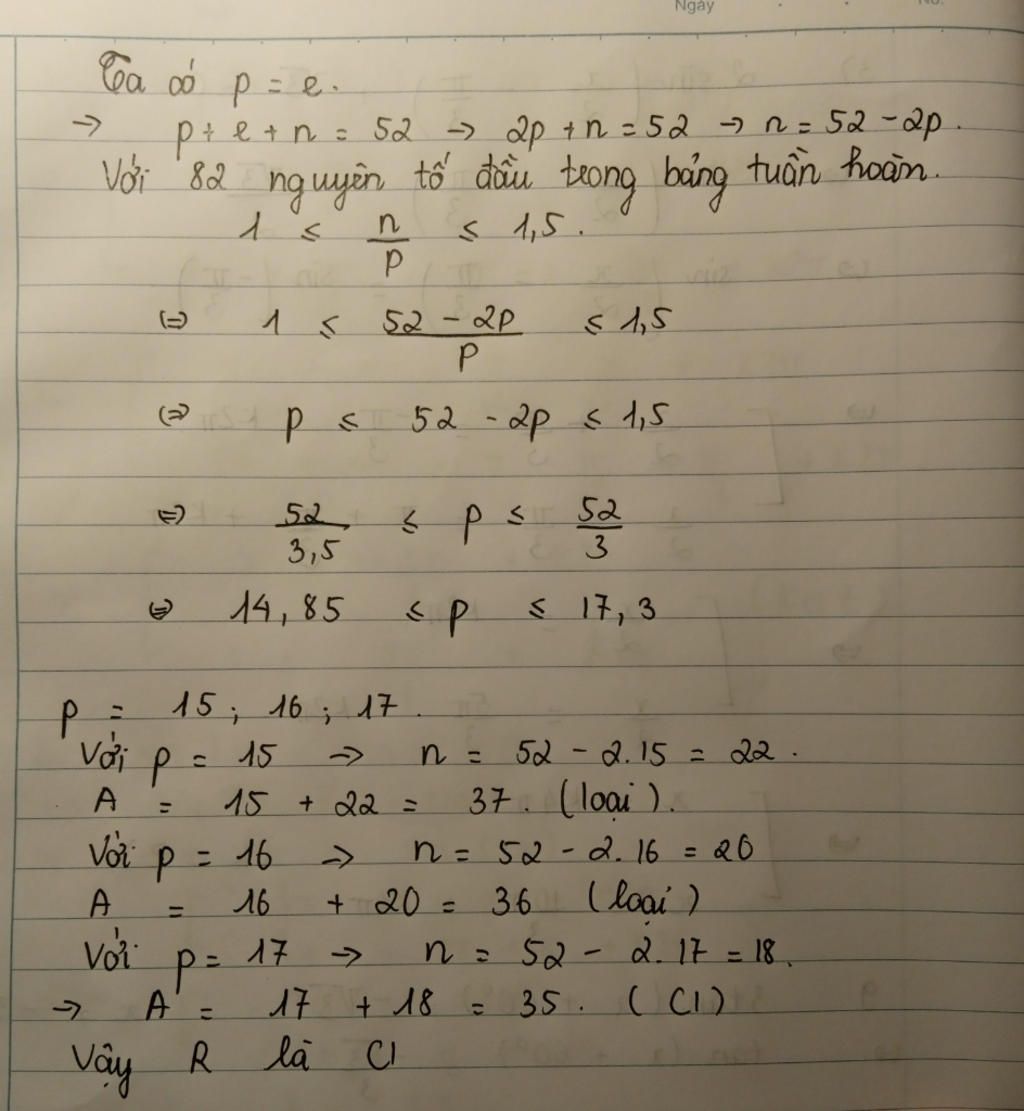 Ngày No.
Ta có p = e.
→ p + e + n = 52 → 2p + n = 52 → n = 52 - 2p.
Với 82 nguyên tố đầu trong bảng tuần hoàn.
1 ≤ n/p ≤ 1,5.
⇔ 1 ≤ (52 - 2p)/p ≤ 1,5
⇔ p ≤ 52 - 2p ≤ 1,5
⇔ 52/3,5 ≤ p ≤ 52/3
⇔ 14,85 ≤ p ≤ 17,3
p = 15 ; 16 ; 17.
Với p = 15 → n = 52 - 2.15 = 22.
A = 15 + 22 = 37. (loại).
Với p = 16 → n = 52 - 2.16 = 20
A = 16 + 20 = 36 (loại)
Với p = 17 → n = 52 - 2.17 = 18.
→ A = 17 + 18 = 35. (Cl)
Vậy R là Cl